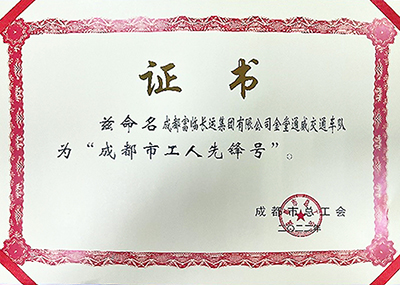 证书
兹命名成都富临长运集团有限公司金堂通威交通车队
为“成都市工人先锋号”。
成都市总工会
二〇二二年